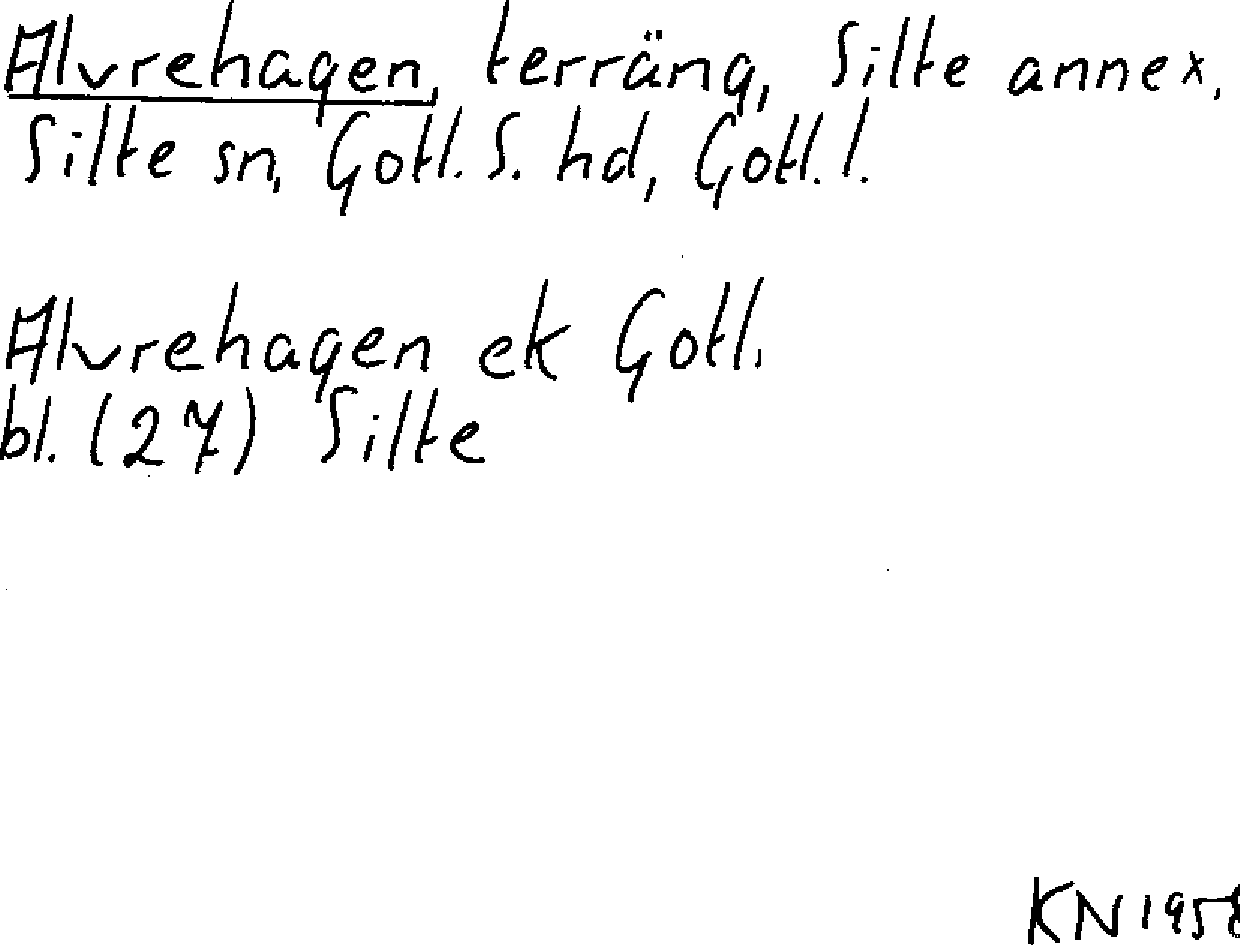 Alvrehagen, terräng, Silte annex,
Silte sn, Gotl. S. hd, Gotl. l.
Alvrehagen ek Gotl.
bl. (27) Silte
KN 1958